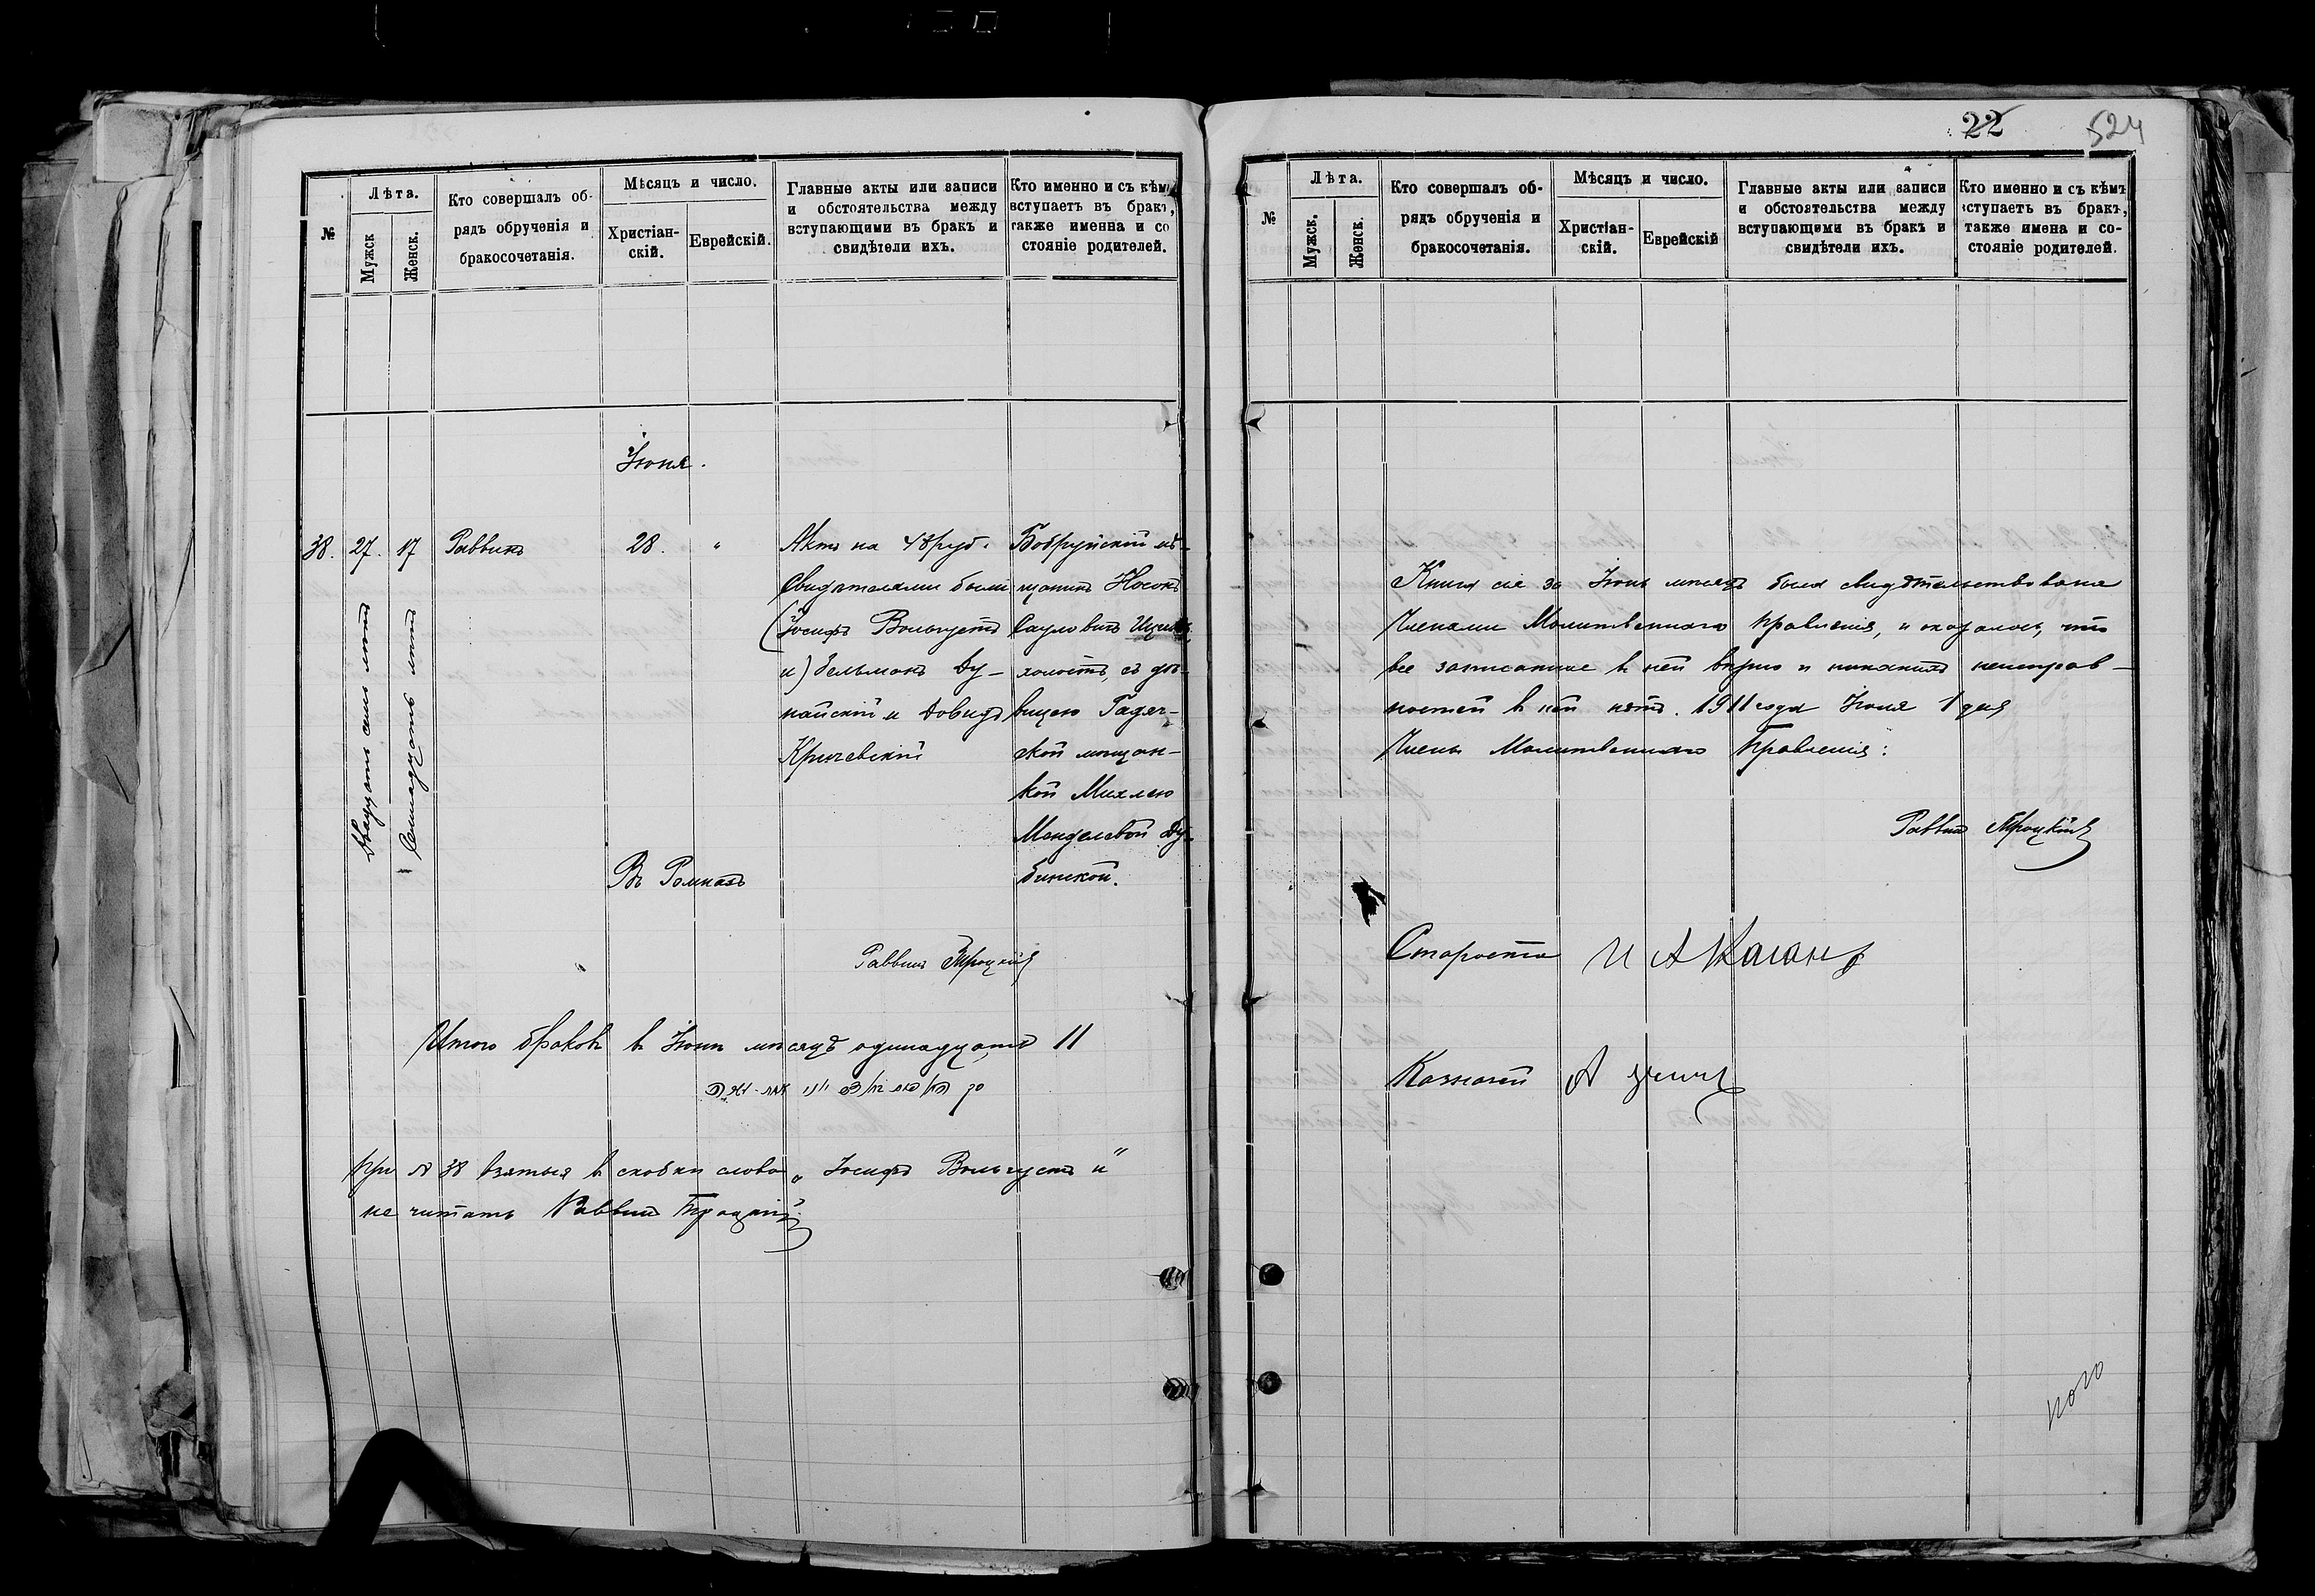 №
Лѣта.
Мужск
Женск.
Кто совершалъ об-
рядъ обрученія и
бракосочетанія.
Мѣсяцъ и число.
Христіан-
скій.
Еврейскій.
Главные акты или записи
и обстоятельства между
вступающими въ бракъ и
свидѣтели ихъ.
Кто именно и съ кѣмъ
вступаетъ въ бракъ,
также именна и со
стояніе родителей.
Іюня.
38. 27. 17 Раввинъ 28. "
Двадцать семь лѣтъ
Семнадцать лѣтъ
Актъ на 48 руб.
Свидѣтелями были
(Іосифъ Вольгустъ
и) Зельманъ Ду-
найскій и Довидъ
Кричевскій
Бобруйскій мѣ-
щанинъ Носонъ
Сауловичъ
холостъ, съ дѣ-
вицею Гадяч-
ской мѣщан-
кой Михлею
Менделевой Ду-
бинской.
Въ Ромнахъ
Раввинъ Троцкій
Итого браковъ в Іюнь мѣсяцъ одинадцать 11
При № 38 взятыя в скобки слова „Іосифъ Вольгустъ и"
не читать Раввин Троцкій
22
524
№
Лѣта.
Мужск.
Женск.
Кто совершалъ об-
рядъ обрученія и
бракосочетанія.
Мѣсяцъ и число.
Христіан-
скій.
Еврейскій
Главные акты или записи
и обстоятельства между
вступающими въ бракъ и
свидѣтели ихъ.
Кто именно и съ кѣмъ
вступаетъ въ бракъ,
также имена и со-
стояніе родителей.
Книга сія за Іюнь мѣсяцъ была свидѣтельствована
Членами Молитвеннаго Правленія, и оказалось, что
все записанное в ней вѣрно и никакихъ неисправ-
ностей в ней нѣтъ. 1911 года Іюля 1 дня
Члены Молитвеннаго Правленія:
Раввин Троцкій
Староста И А Каганъ
Казначей А